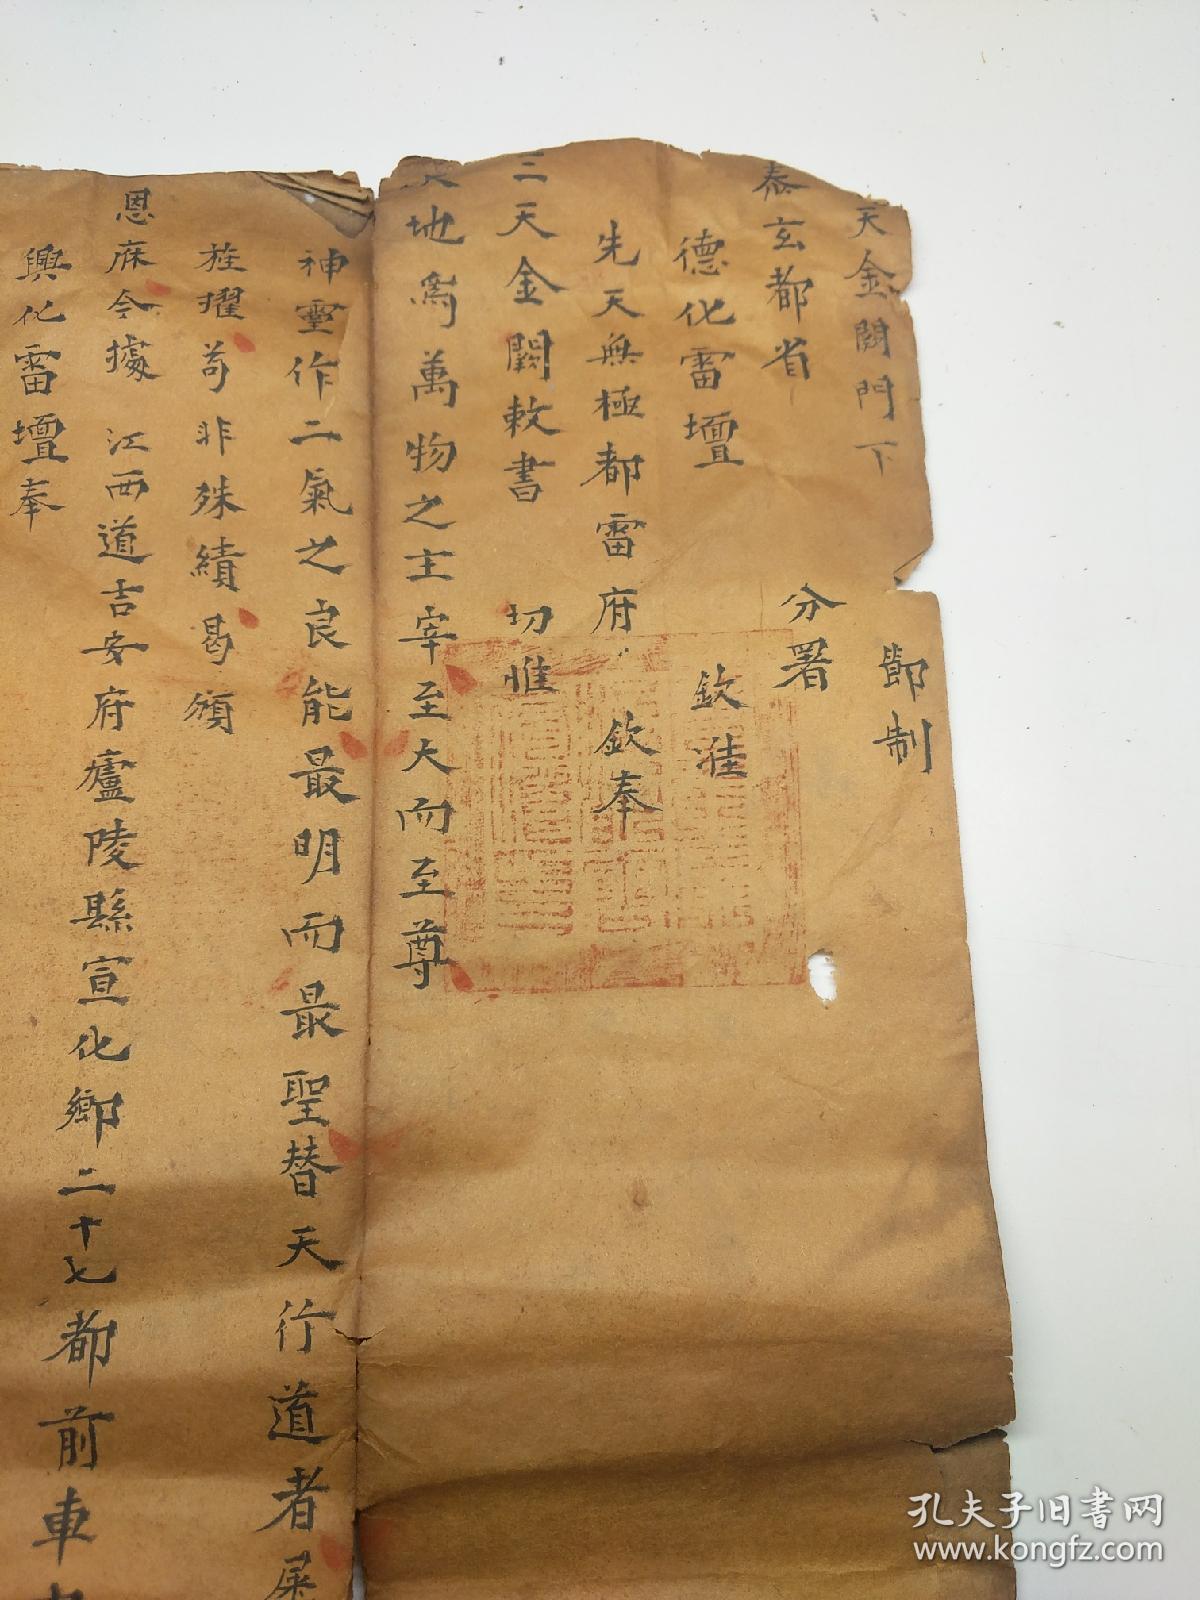 天金闕門下 節制
泰玄都省 分署
德化雷壇 欽準
先天無極都雷府 欽奉
三天金闕敕書 切惟
地為萬物之主宰至大而至尊
神靈作二氣之良能最明而最聖替天行道者屡
旌擢苟非殊績曷頒
恩庥今據 江西道吉安府廬陵縣宣化鄉二十七都前車
興化雷壇奉
孔夫子旧书网
www.kongfz.com